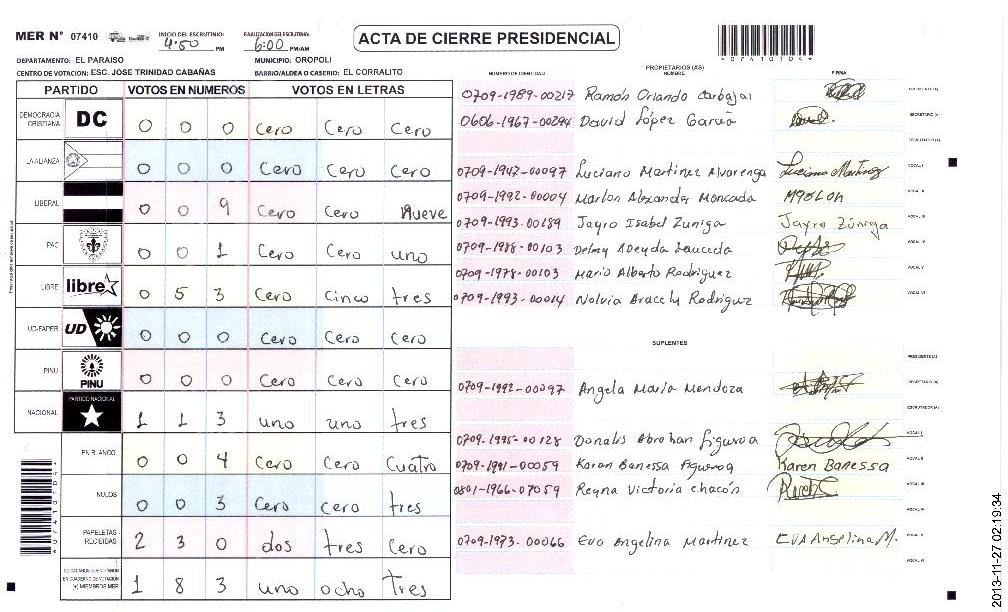 MER N° 07410 INICIO DEL ESCRUTINIO: 4:50 PM FINALIZACION DEL ESCRUTINIO: 6:00 PM/AM ACTA DE CIERRE PRESIDENCIAL *07410104*
DEPARTAMENTO: EL PARAISO MUNICIPIO: OROPOLI
CENTRO DE VOTACION: ESC. JOSE TRINIDAD CABAÑAS BARRIO/ALDEA O CASERIO: EL CORRALITO
PARTIDO VOTOS EN NUMEROS VOTOS EN LETRAS
DEMOCRACIA CRISTIANA DC 0 0 0 Cero Cero Cero
LA ALIANZA 0 0 0 Cero Cero Cero
LIBERAL 0 0 9 Cero Cero Nueve
PAC 0 0 1 Cero Cero uno
LIBRE libre 0 5 3 Cero Cinco tres
UD-FAPER UD 0 0 0 Cero Cero Cero
PINU PINU 0 0 0 Cero Cero Cero
NACIONAL PARTIDO NACIONAL 1 1 3 uno uno tres
EN BLANCO 0 0 4 Cero Cero Cuatro
NULOS 0 0 3 Cero Cero tres
PAPELETAS RECIBIDAS 2 3 0 dos tres Cero
CIUDADANOS QUE VOTARON EN CUADERNO DE VOTACION (+) MIEMBROS MER 1 8 3 uno ocho Tres
PROPIETARIOS (AS)
NUMERO DE IDENTIDAD NOMBRE FIRMA
0709-1989-00217 Ramón Orlando Carbajal PRESIDENTE (A)
0606-1967-00294 David López García SECRETARIO (A)
ESCRUTADOR (A)
0709-1947-00097 Luciano Martinez Alvarenga Luciano Martinez VOCAL I
0709-1992-00004 Marlon Alexander Moncada Marlon VOCAL II
0709-1993-00189 Jayro Isabel Zuniga Jayro Zúniga VOCAL III
0709-1988-00103 Delmy Adeyda Sauceda VOCAL IV
0709-1978-00103 Mario Alberto Rodriguez VOCAL V
0709-1993-00014 Nolvia Aracely Rodriguez VOCAL VI
SUPLENTES
PRESIDENTE (A)
0709-1992-00097 Angela Maria Mendoza SECRETARIO (A)
ESCRUTADOR (A)
0709-1995-00128 Donalis Abrahan Figueroa VOCAL I
0709-1991-00059 Karen Banessa Figueroa Karen Banessa VOCAL II
0801-1966-07059 Reyna Victoria Chacón VOCAL III
VOCAL IV
0709-1973-00066 Eva Angelina Martinez EVA Angelina M. VOCAL V
VOCAL VI
*07410104*
2013-11-27 02:19:34